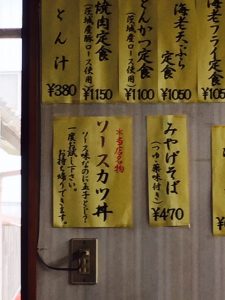 海老フライ定食
¥1050
海老天ぷら
定食
¥1050
とんかつ定食
(茨城産ロース使用)
¥1100
焼肉定食
(茨城産豚ロース使用)
¥1150
とん汁
¥380
みやげそば
(つゆ・薬味付き)
¥470
*当店名物
ソースカツ丼
ソース味なのに玉子とじ?
一度お試し下さい。
お持ち帰りできます。